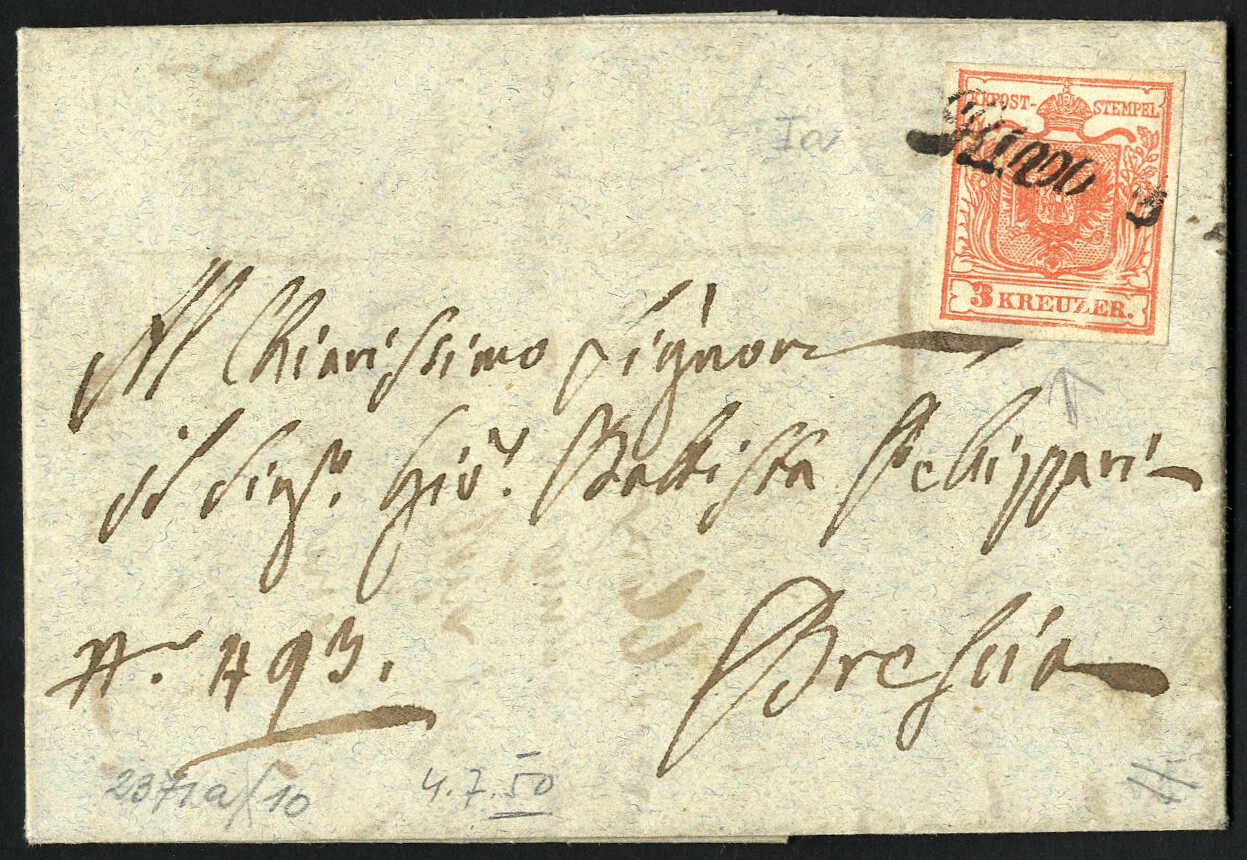 KKPOST-STEMPEL
3
3 KREUZER.
Ia
Al Chiarissimo Signor
il Sigr. Gio. Battista
Brescia
N. 493.
237/1a/10
4.7.50